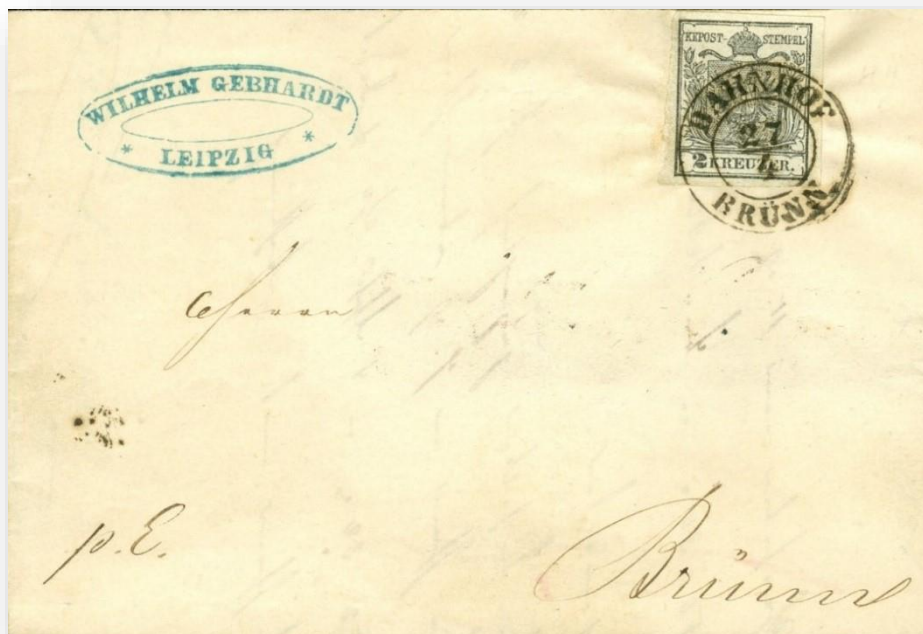 WILHELM GEBHARDT
* LEIPZIG *
KKPOST-STEMPEL
2 KREUZER.
BAHNHOF
27
4
BRÜNN
Herrn
p. E.
Brünn